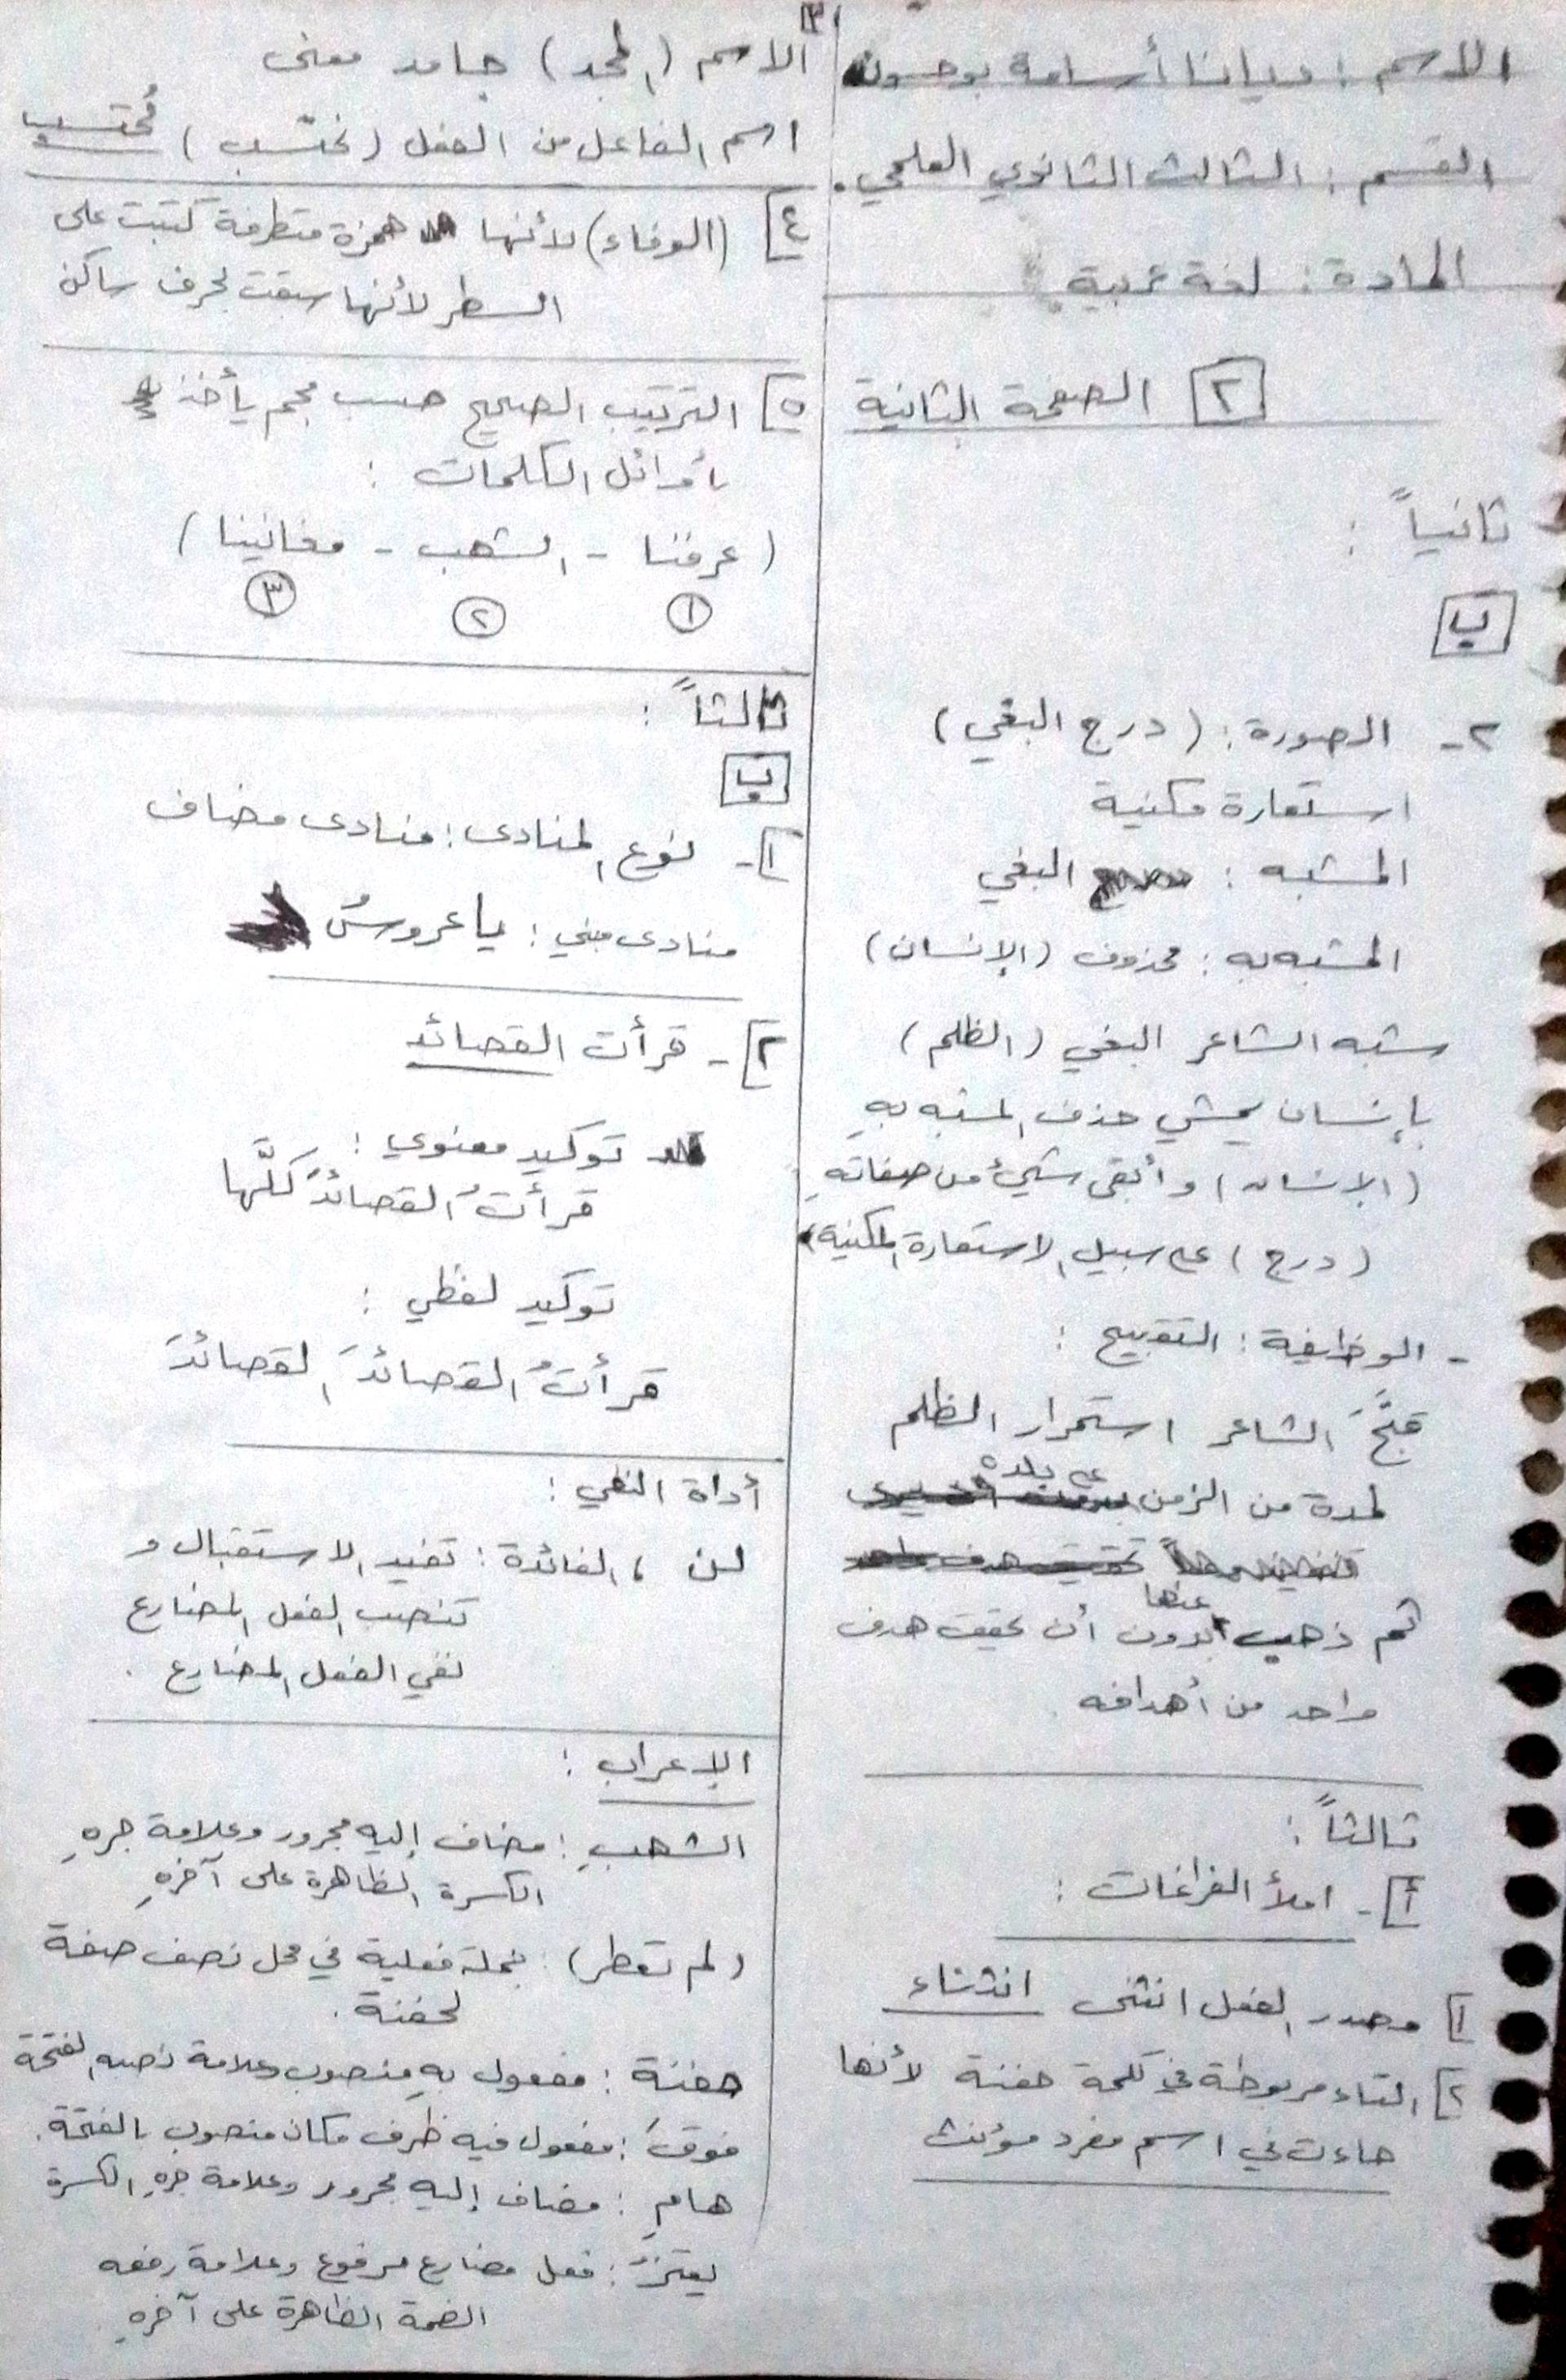 الاسم : ديانا أسامة بوحسون
القسم : الثالث الثانوي العلمي.
المادة : لغة عربية
٢ الصفحة الثانية
ثانياً :
ب
٢- الصورة : (درج البغي)
استعارة مكنية
المشبه : البغي
المشبه به : محذوف (الإنسان)
شبه الشاعر البغي (الظلم)
بإنسان يمشي حذف المشبه بهِ
(الإنسان) وأبقى شيءً من صفاتهِ
(درج) على سبيل الاستعارة المكنية)
- الوظيفة : التقبيح :
قبَّحَ الشاعر استمرار الظلم
لمدة من الزمن على بلده
ثم ذهب عنها بدون أن يحقق هدف
واحد من أهدافه
ثالثاً :
أ]- املأ الفراغات :
١] مصدر الفعل انثنى انثناء
٢] التاء مربوطة في كلمة حفنة لأنها
جاءت في اسم مفرد مؤنث
٣] الاسم (المجد) جامد معنى
اسم الفاعل من الفعل (نحتسب) مُحتسب
٤] (الوفاء) لأنها همزة متطرفة كتبت على
السطر لأنها سبقت بحرف ساكن
٥] الترتيب الصحيح حسب معجم يأخذ
بأوائل الكلمات :
(عرفنا - الشهب - مغانينا)
١ ٢ ٣
ثالثاً :
ب
١]- نوع المنادى : منادى مضاف
منادى مبني : يا عروسُ
٢]- قرأت القصائد
توكيد معنوي :
قرأتُ القصائدَ كلَّها
توكيد لفظي :
قرأتُ القصائدَ القصائدَ
أداة النفي :
لن ، الفائدة : تفيد الاستقبال و
تنصب الفعل المضارع
نفي الفعل المضارع .
الإعراب :
الشهبِ : مضاف إليه مجرور وعلامة جرهِ
الكسرة الظاهرة على آخرهِ
(لم تعطر) : جملة فعلية في محل نصب صفة
لحفنة .
حفنة : مفعول بهِ منصوب وعلامة نصبه الفتحة
فوقَ : مفعول فيه ظرف مكان منصوب بالفتحة .
هامِ : مضاف إليه مجرور وعلامة جرهِ الكسرة
يعتزُّ : فعل مضارع مرفوع وعلامة رفعه
الضمة الظاهرة على آخرهِ